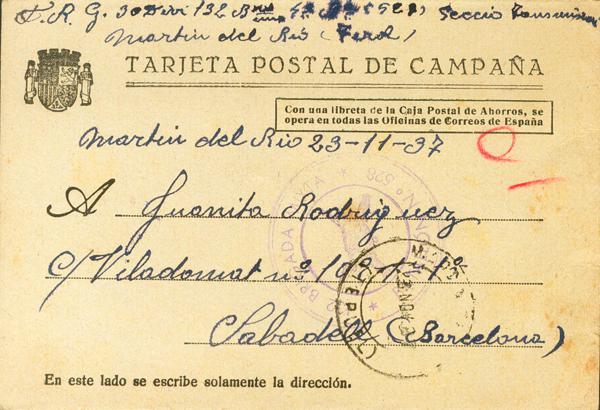 T. R. G. 30 Divi 132 B
Martin del Rio (Terol)
TARJETA POSTAL DE CAMPAÑA
Con una libreta de la Caja Postal de Ahorros, se
opera en todas las Oficinas de Correos de España
Martin del Rio 23-11-37
A Juanita Rodriguez
C/ Viladomat nº
Sabadell (Barcelona)
En este lado se escribe solamente la dirección.